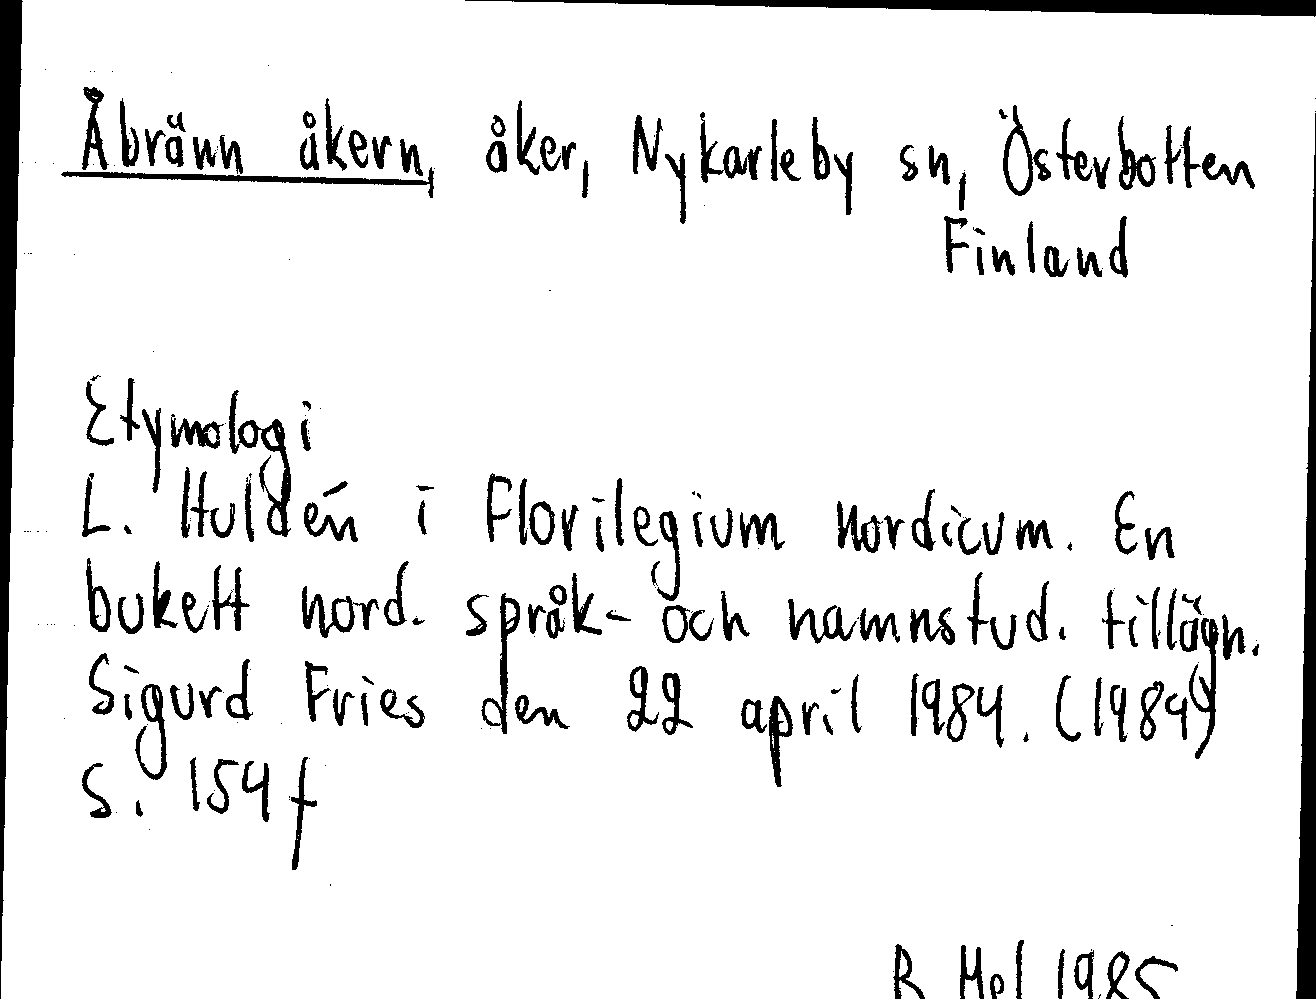 Åbränn åkern, åker, Nykarleby sn, Österbotten
Finland
Etymologi
L. Huldén i Florilegium nordicum. En
bukett nord. språk- och namnstud. tillägn.
Sigurd Fries den 22 april 1984. (1984)
s. 154 f
R Mel 1985